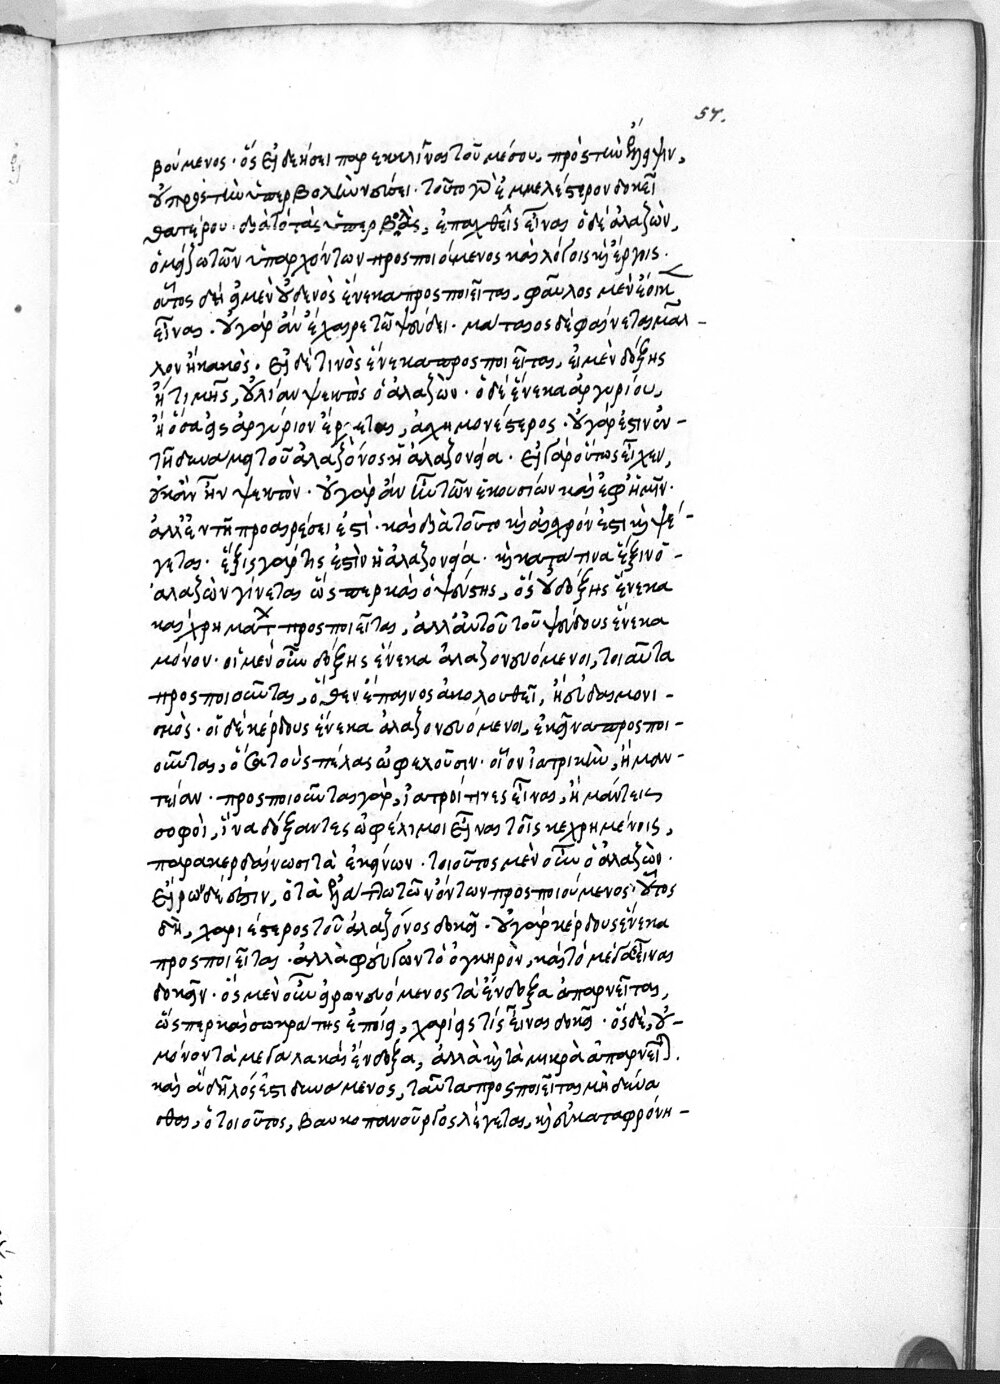 57.
βούμενος· ὃς εἰ δεήσει παρεκκλῖναι τοῦ μέσου, πρὸς τὴν ἔλλειψιν,
οὐ πρὸς τὴν ὑπερβολὴν οἴσει· τοῦτο γὰρ ἐμμελέστερον δοκεῖ
θατέρου· διὰ τὸ τὰς ὑπερβολὰς, ἐπαχθεῖς εἶναι· ὁ δὲ ἀλαζὼν,
ὁ μείζω τῶν ὑπαρχόντων προσποιούμενος καὶ λόγοις καὶ ἔργοις.
οὗτος δὴ εἰ μὲν οὐδενὸς ἕνεκα προσποιεῖται, φαῦλος μὲν ἔοικεν
εἶναι· οὐ γὰρ ἂν ἔχαιρε τῷ ψεύδει· μάταιος δὲ φαίνεται μᾶλ-
λον ἢ κακός· εἰ δέ τινος ἕνεκα προσποιεῖται, εἰ μὲν δόξης
ἢ τιμῆς, οὐ λίαν ψεκτὸς ὁ ἀλαζών· ὁ δὲ ἕνεκα ἀργυρίου,
ἢ ὅσα εἰς ἀργύριον ἔρχεται, ἀσχημονέστερος· οὐ γάρ ἐστιν ἐν
τῇ δυνάμει τοῦ ἀλαζόνος ἡ ἀλαζονεία· εἰ γὰρ οὕτως εἶχεν,
οὐκ ἂν ἦν ψεκτόν· οὐ γὰρ ἂν ἦν τῶν ἑκουσίων καὶ ἐφ' ἡμῖν·
ἀλλ' ἐν τῇ προαιρέσει ἐστί· καὶ διὰ τοῦτο καὶ αἰσχρόν ἐστι καὶ ψέ-
γεται· ἕξις γάρ τις ἐστὶν ἡ ἀλαζονεία· καὶ κατά τινα ἕξιν ὁ
ἀλαζὼν γίνεται ὥσπερ καὶ ὁ ψεύστης, ὃς οὐ δόξης ἕνεκα
καὶ χρημάτων προσποιεῖται, ἀλλ' αὐτοῦ τοῦ ψεύδους ἕνεκα
μόνον· οἱ μὲν οὖν δόξης ἕνεκα ἀλαζονευόμενοι, τοιαῦτα
προσποιοῦνται, ὅθεν ἔπαινος ἀκολουθεῖ, ἢ εὐδαιμονι-
σμός· οἱ δὲ κέρδους ἕνεκα ἀλαζονευόμενοι, ἐκεῖνα προσποι-
οῦνται, ὅσα τοὺς πέλας ὠφελοῦσιν· οἷον ἰατρικὴν, ἢ μαν-
τείαν· προσποιοῦνται γὰρ, ἰατροί τινες εἶναι, ἢ μάντεις
σοφοὶ, ἵνα δόξαντες ὠφέλιμοι εἶναι τοῖς κεχρημένοις,
παρακερδαίνωσι τὰ ἐκείνων· τοιοῦτος μὲν οὖν ὁ ἀλαζών·
εἴρων δέ ἐστιν, ὁ τὰ ἐλάττω τῶν ὄντων προσποιούμενος· οὗτος
δὴ, χαριέστερος τοῦ ἀλαζόνος δοκεῖ· οὐ γὰρ κέρδους ἕνεκα
προσποιεῖται· ἀλλὰ φεύγων τὸ ὀγκηρὸν, καὶ τὸ μέγα εἶναι
δοκεῖν· ὃς μὲν οὖν εἰρωνευόμενος τὰ ἔνδοξα ἀπαρνεῖται,
ὥσπερ καὶ σωκράτης ἐποίει, χαρίεις τίς εἶναι δοκεῖ· ὃς δὲ, οὐ
μόνον τὰ μεγάλα καὶ ἔνδοξα, ἀλλὰ καὶ τὰ μικρὰ ἀπαρνεῖται.
καὶ ἃ δῆλός ἐστι δυνάμενος, ταῦτα προσποιεῖται μὴ δύνα
σθαι, ὁ τοιοῦτος, βαυκοπανοῦργος λέγεται, καὶ εὐκαταφρόνη-